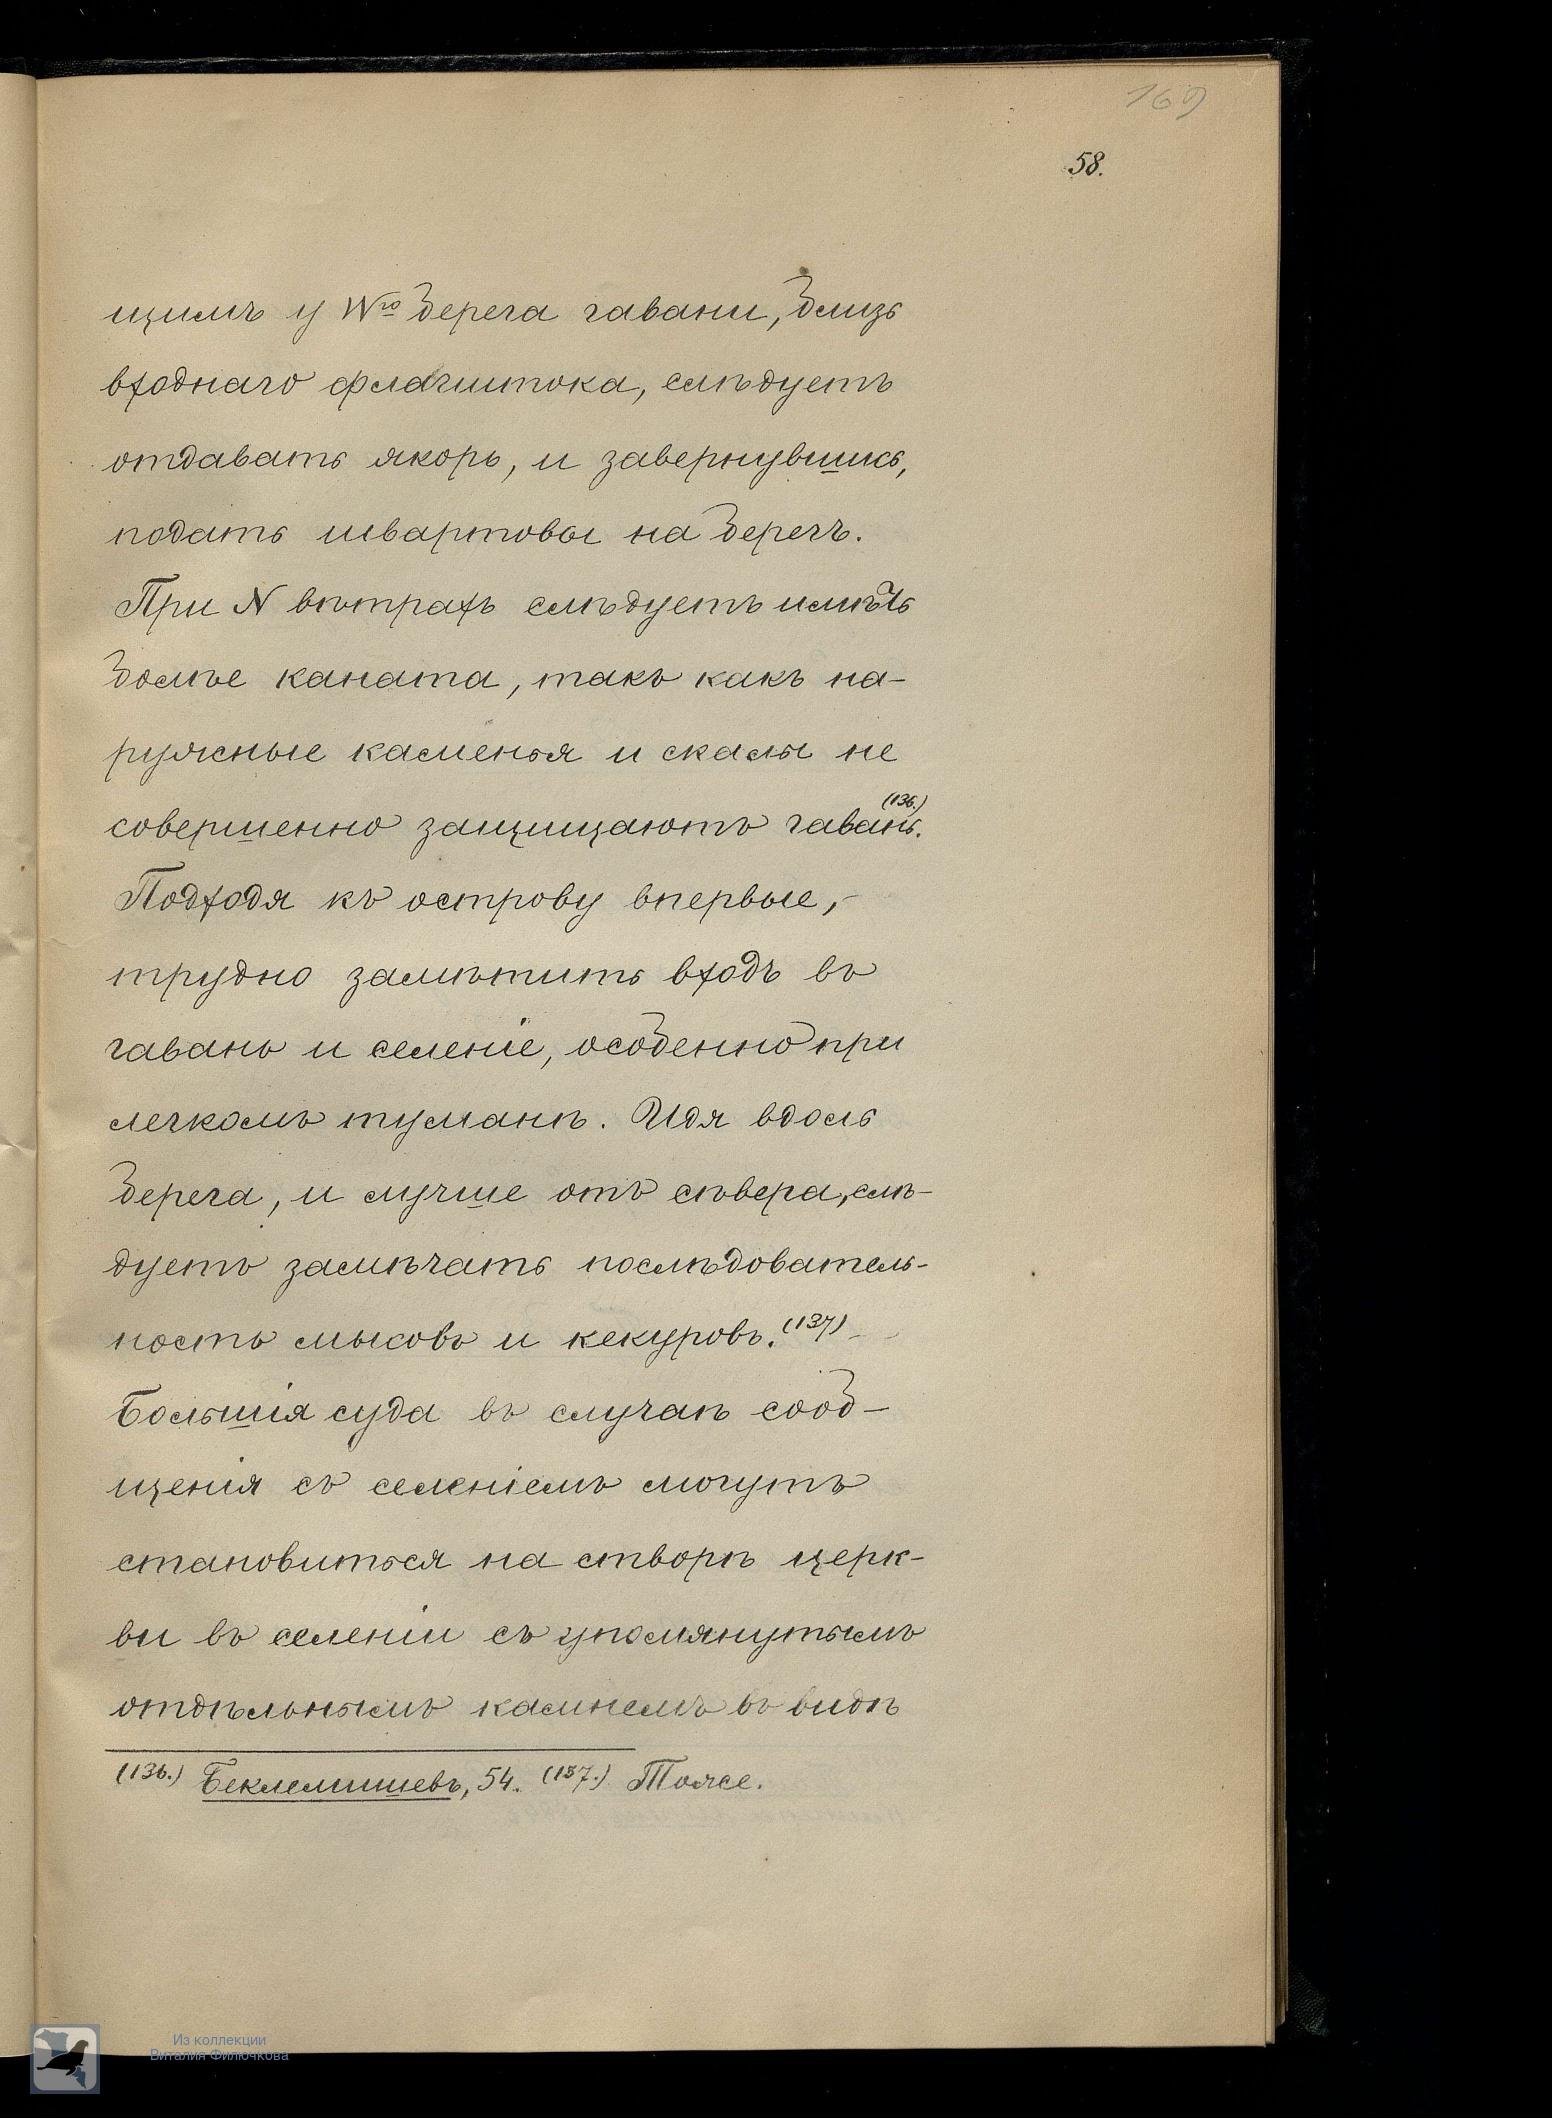 169
58.
щимъ у Wго берега гавани, близь
входнаго флагштока, слѣдуетъ
отдавать якорь, и завернувшись,
подать швартовы на берегъ.
При N вѣтрахъ слѣдуетъ имѣть
болѣе каната, такъ какъ на-
ружные каменья и скалы не
совершенно защищаютъ гавань. (136.)
Подходя къ острову впервые,-
трудно замѣтить входъ въ
гавань и селеніе, особенно при
легкомъ туманѣ. Идя вдоль
берега, и лучше отъ сѣвера, слѣ-
дуетъ замѣчать послѣдователь-
ность мысовъ и кекуровъ. (137)
Большія суда въ случаѣ сооб-
щенія съ селеніемъ могутъ
становиться на створѣ церк-
ви въ селеніи съ упомянутымъ
отдѣльнымъ камнемъ въ видѣ
(136.) Беклемишевъ, 54. (137.) Тоже.
Из коллекции
Виталия Филючкова